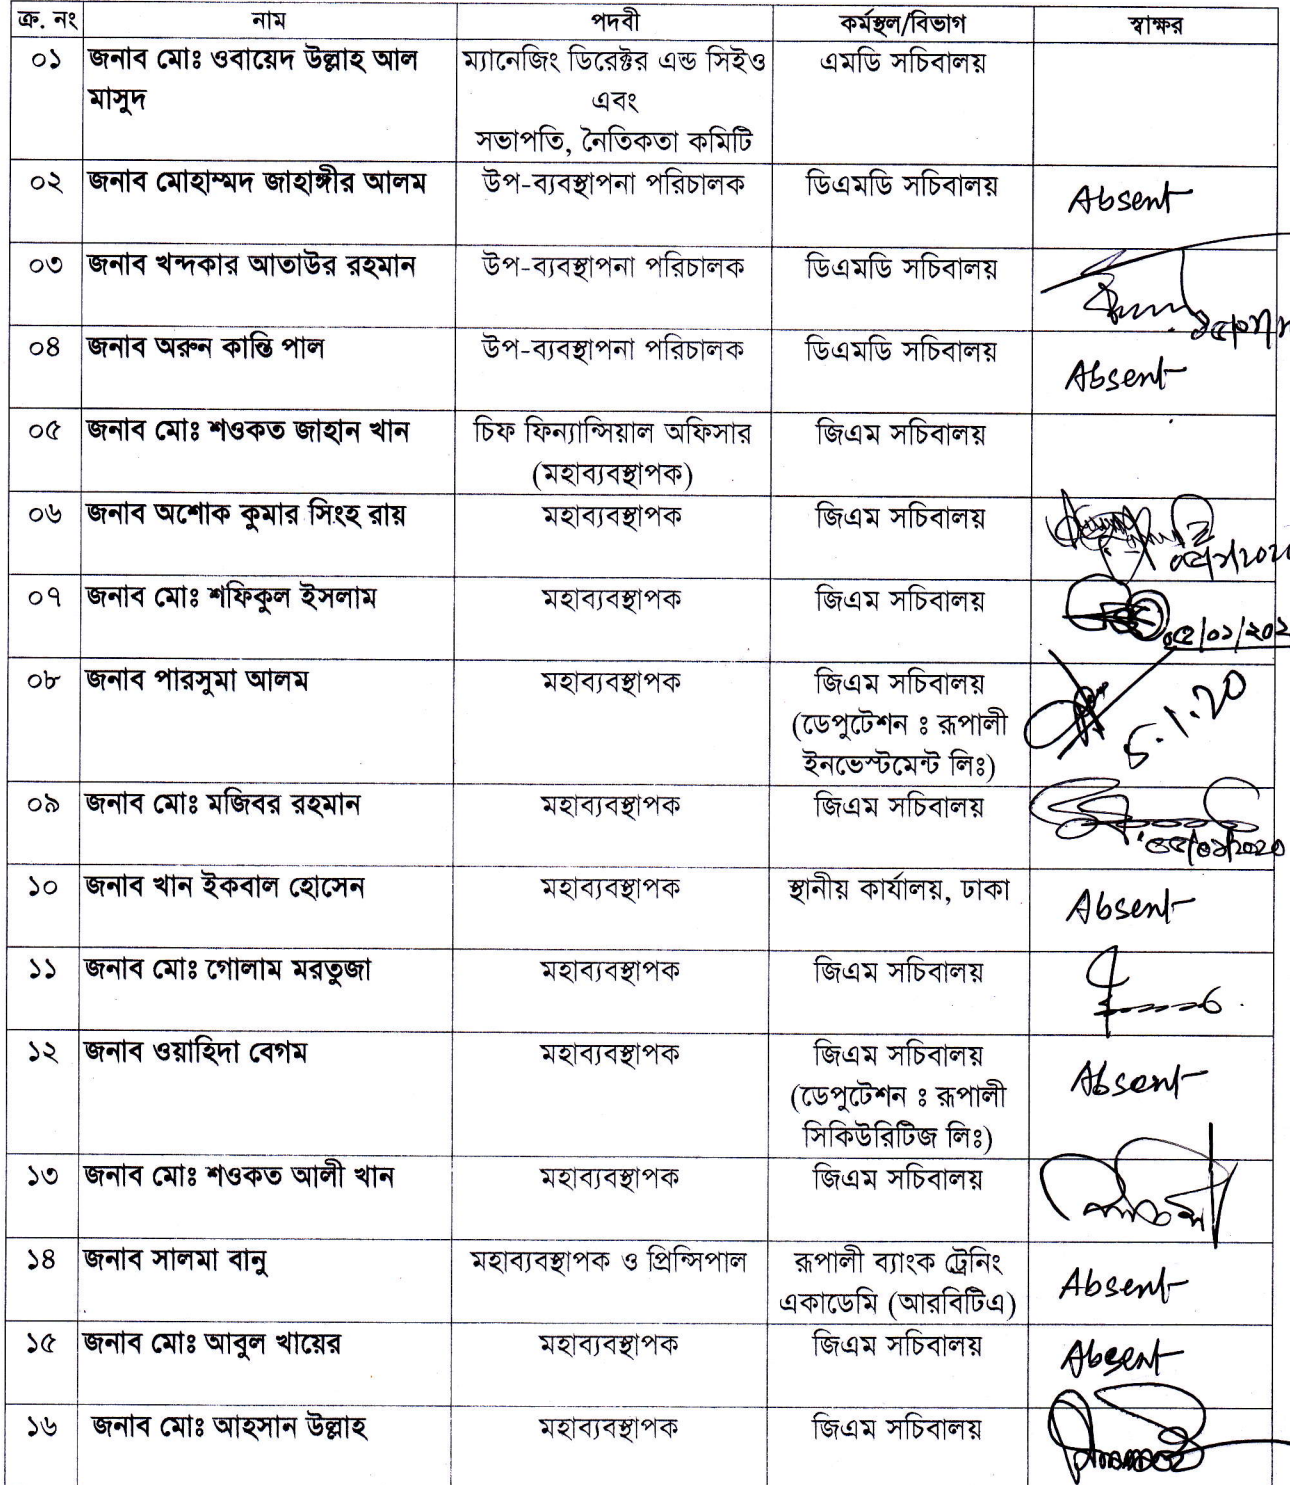 ক্র. নং নাম পদবী কর্মস্থল/বিভাগ স্বাক্ষর
০১ জনাব মোঃ ওবায়েদ উল্লাহ আল ম্যানেজিং ডিরেক্টর এন্ড সিইও এমডি সচিবালয়
মাসুদ এবং
সভাপতি, নৈতিকতা কমিটি
০২ জনাব মোহাম্মদ জাহাঙ্গীর আলম উপ-ব্যবস্থাপনা পরিচালক ডিএমডি সচিবালয় Absent
০৩ জনাব খন্দকার আতাউর রহমান উপ-ব্যবস্থাপনা পরিচালক ডিএমডি সচিবালয়
০৪ জনাব অরুন কান্তি পাল উপ-ব্যবস্থাপনা পরিচালক ডিএমডি সচিবালয় Absent
০৫ জনাব মোঃ শওকত জাহান খান চিফ ফিন্যান্সিয়াল অফিসার জিএম সচিবালয়
(মহাব্যবস্থাপক)
০৬ জনাব অশোক কুমার সিংহ রায় মহাব্যবস্থাপক জিএম সচিবালয়
০৭ জনাব মোঃ শফিকুল ইসলাম মহাব্যবস্থাপক জিএম সচিবালয় ০৫/০১/২০২
০৮ জনাব পারসুমা আলম মহাব্যবস্থাপক জিএম সচিবালয় 5.1.20
(ডেপুটেশন ঃ রূপালী
ইনভেস্টমেন্ট লিঃ)
০৯ জনাব মোঃ মজিবর রহমান মহাব্যবস্থাপক জিএম সচিবালয় ০৫/০১/২০২০
১০ জনাব খান ইকবাল হোসেন মহাব্যবস্থাপক স্থানীয় কার্যালয়, ঢাকা Absent
১১ জনাব মোঃ গোলাম মরতুজা মহাব্যবস্থাপক জিএম সচিবালয়
১২ জনাব ওয়াহিদা বেগম মহাব্যবস্থাপক জিএম সচিবালয় Absent
(ডেপুটেশন ঃ রূপালী
সিকিউরিটিজ লিঃ)
১৩ জনাব মোঃ শওকত আলী খান মহাব্যবস্থাপক জিএম সচিবালয়
১৪ জনাব সালমা বানু মহাব্যবস্থাপক ও প্রিন্সিপাল রূপালী ব্যাংক ট্রেনিং Absent
একাডেমি (আরবিটিএ)
১৫ জনাব মোঃ আবুল খায়ের মহাব্যবস্থাপক জিএম সচিবালয় Absent
১৬ জনাব মোঃ আহসান উল্লাহ মহাব্যবস্থাপক জিএম সচিবালয়